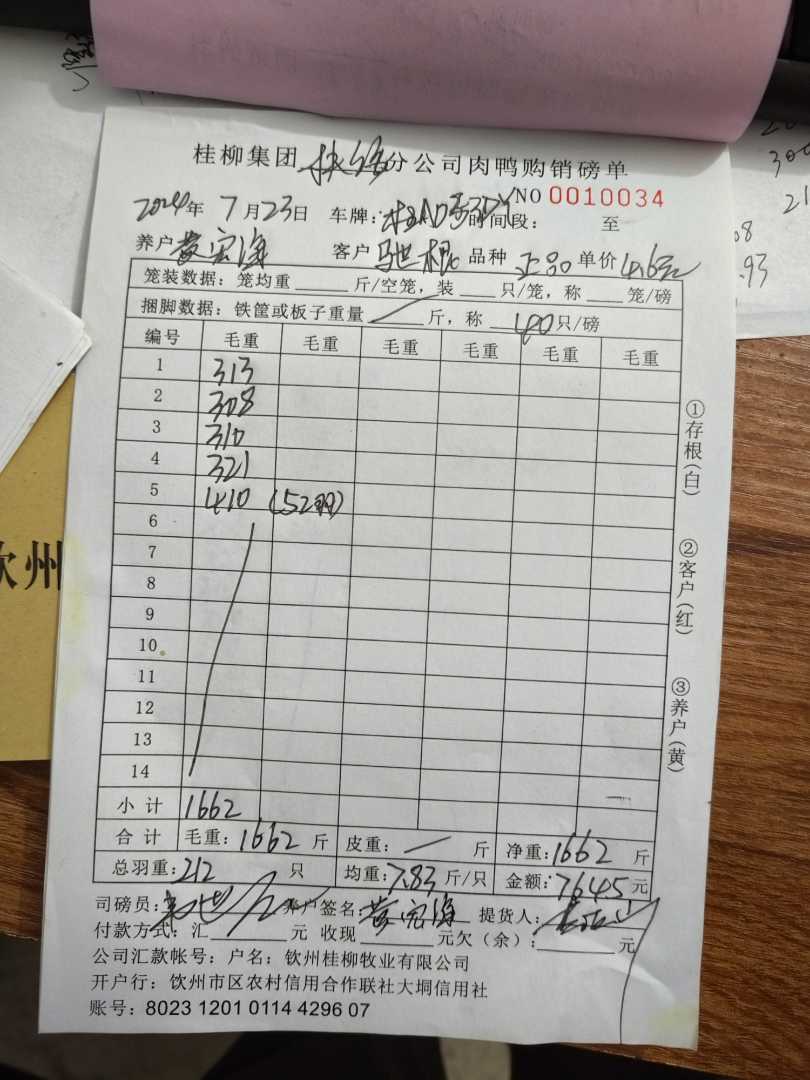 桂柳集团扶绥分公司肉鸭购销磅单
2024年 7月23日 车牌: 时间段: 至 NO 0010034
养户 黄宏海 客户 驰根 品种 正品 单价 4.6元
笼装数据: 笼均重 斤/空笼, 装 只/笼, 称 笼/磅
捆脚数据: 铁筐或板子重量 斤, 称 40只/磅
编号 毛重 毛重 毛重 毛重 毛重 毛重
1 313
2 308
3 310
4 321
5 410 (52羽)
6
7
8
9
10
11
12
13
14
小计 1662
合计 毛重: 1662 斤 皮重: 斤 净重: 1662 斤
总羽重: 212 只 均重: 7.83 斤/只 金额: 7645 元
司磅员: 养户签名: 黄宏海 提货人:
付款方式: 汇 元 收现 元欠(余): 元
公司汇款帐号: 户名: 钦州桂柳牧业有限公司
开户行: 钦州市区农村信用合作联社大垌信用社
账号: 8023 1201 0114 4296 07
①存根(白)
②客户(红)
③养户(黄)
钦州
300
21
08
.93